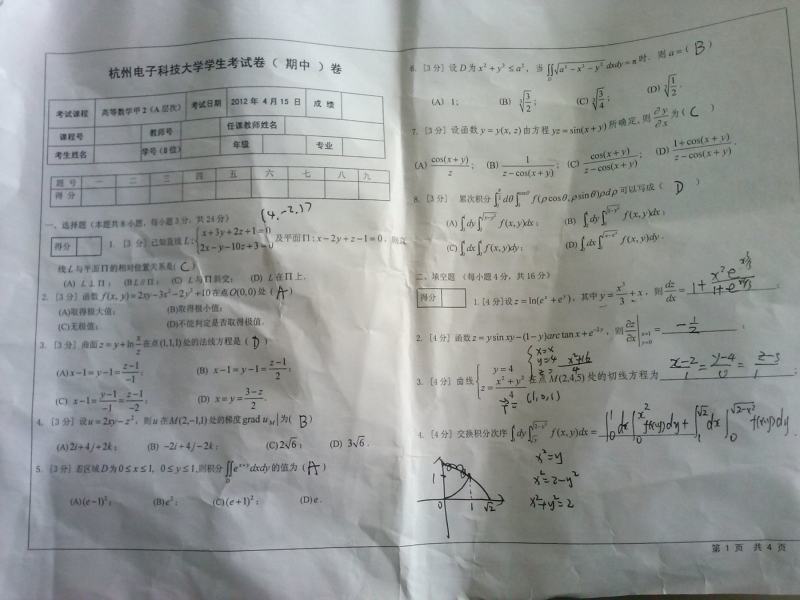 杭州电子科技大学学生考试卷（ 期中 ）卷
考试课程 高等数学甲2（A层次） 考试日期 2012年 4月 15日 成 绩
课程号 教师号 任课教师姓名
考生姓名 学号（8位） 年级 专业
题 号 一 二 三 四 五 六 七 八 九
得 分
一、选择题（本题共8小题，每小题3分，共24分）
得分
(4,-2,
1. [3分] 已知直线L: { x+3y+2z+1=0 2x-y-10z+3=0 及平面Π: x-2y+z-1=0，则直
线L与平面Π的相对位置关系是( C )
(A) L⊥Π； (B) L∥Π； (C) L与Π斜交； (D) L在Π上．
2. [3分] 函数 f(x,y)=2xy-3x²-2y²+10 在点O(0,0)处 ( A )
(A)取得极大值； (B)取得极小值；
(C)无极值； (D)不能判定是否取得极值．
3. [3分] 曲面 z=y+ln x/z 在点(1,1,1)处的法线方程是 ( D )
(A) x-1=y-1=(z-1)/(-1)； (B) x-1=y-1=(z-1)/2；
(C) (x-1)/(-1)=(y-1)/(-1)=(z-1)/(-2)； (D) x=y=(3-z)/2．
4. [3分] 设 u=2xy-z²，则u在M(2,-1,1)处的梯度 grad u|M 为( B )
(A) 2i+4j+2k； (B) -2i+4j-2k； (C) 2√6； (D) 3√6．
5. [3分] 若区域D为 0≤x≤1, 0≤y≤1，则积分 ∬_D e^(x+y)dxdy 的值为 ( A )
(A) (e-1)²； (B) e²； (C) (e+1)²； (D) e．
6. [3分] 设D为 x²+y²≤a²，当 ∬_D √(a²-x²-y²) dxdy=π 时，则a=( B )
(A) 1； (B) ∛(3/2)； (C) ∛(3/4)； (D) ∛(1/2)．
7. [3分] 设函数 y=y(x,z) 由方程 yz=sin(x+y) 所确定，则 ∂y/∂x 为( C )
(A) cos(x+y)/z； (B) 1/(z-cos(x+y))； (C) cos(x+y)/(z-cos(x+y))； (D) (1+cos(x+y))/(z-cos(x+y))．
8. [3分] 累次积分 f(ρcosθ,ρsinθ)ρdρ 可以写成 ( D )
(A) f(x,y)dx； (B) f(x,y)dx；
(C) ∫₀¹dx∫₀¹f(x,y)dy； (D) f(x,y)dy．
二、填空题（每小题4分，共16分）
得分
1. [4分] 设 z=ln(eˣ+eʸ)，其中 y=x³/3+x，则 dz/dx = ；
2. [4分] 函数 z=y sin xy-(1-y)arctan x+e^(-2y)，则 ∂z/∂x | x=1 y=0 = -1/2 ；
x=x
y=4
z=(x²+16)/4
3. [4分] 曲线 { y=4 z=(x²+y²)/4 在点M(2,4,5)处的切线方程为 (x-2)/1=(y-4)/0=(z-5)/1 ；
(1,0,1)
4. [4分] 交换积分次序 f(x,y)dx= ∫₀¹dx∫₀^(x²)f(x,y)dy+∫₁^(√2)dx∫₀^(√(2-x²))f(x,y)dy ．
x²=y
x²=2-y²
x²+y²=2
1
0 1 √2
第 1 页 共 4 页